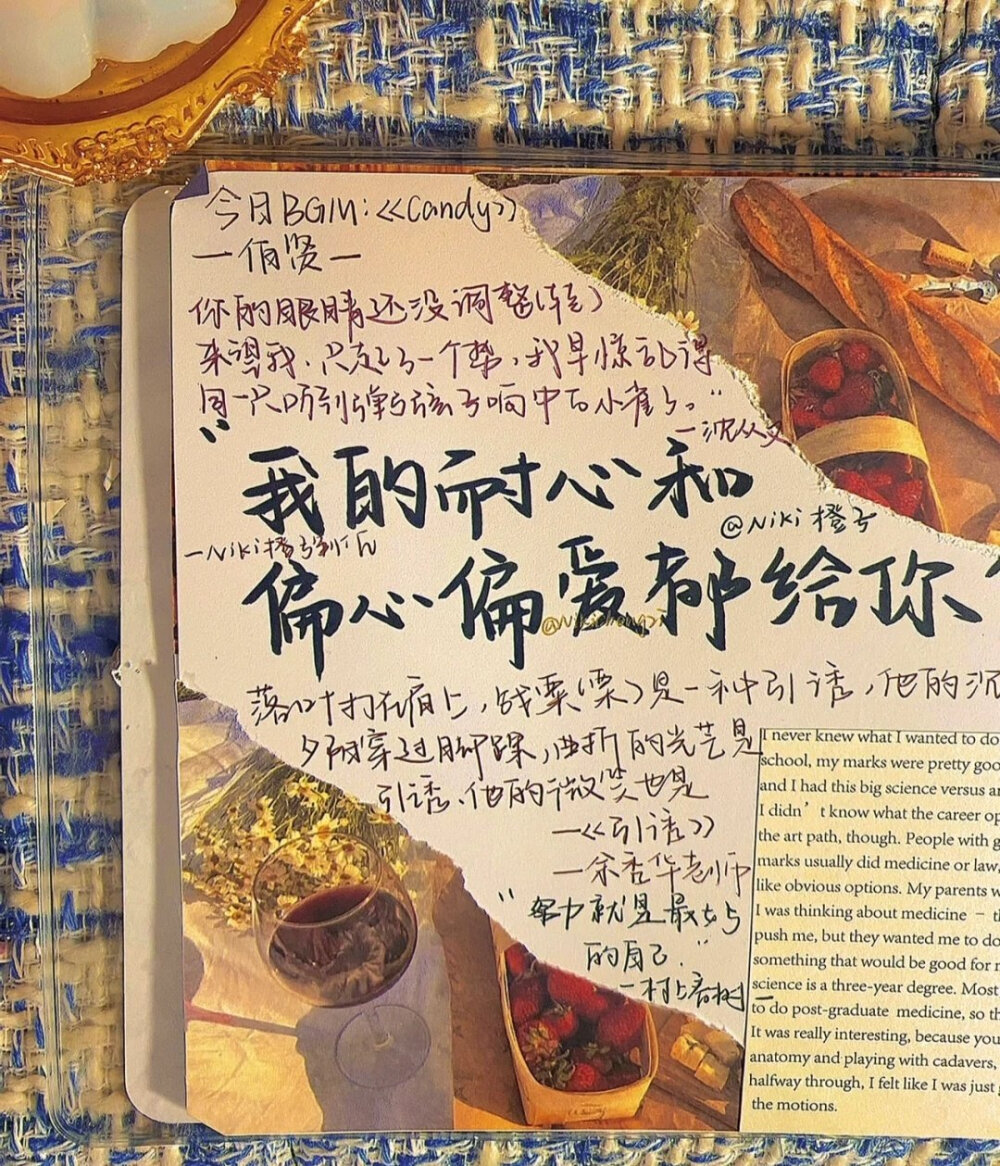 今日BGM:《Candy》
一伯贤一
你的眼睛还没调整(转)
来望我,只起了一个势,我早惊乱得
同一只听到弹弓弦子响中的小雀了。”
一沈从文
“我的耐心和
@Niki橙子
一Niki橙子
偏心偏爱都给你
落叶打在肩上,战栗(栗)是一种引诱,他的沉
夕阳穿过脚踝,曲折的光芒是
引诱、他的微笑也是
一《引诱》
一余秀华老师
“努力就是最好
的自己.”
一村上春树
I never knew what I wanted to do
school, my marks were pretty goo
and I had this big science versus a
I didn't know what the career op
the art path, though. People with g
marks usually did medicine or law,
like obvious options. My parents w
I was thinking about medicine – th
push me, but they wanted me to do
something that would be good for m
science is a three-year degree. Most
to do post-graduate medicine, so th
It was really interesting, because you
anatomy and playing with cadavers,
halfway through, I felt like I was just g
the motions.